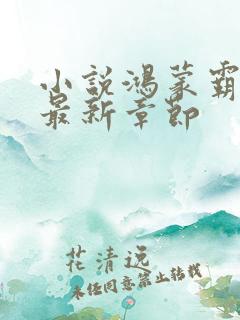 小說鴻蒙霸
最新章節
花清逸
未经同意禁止转载